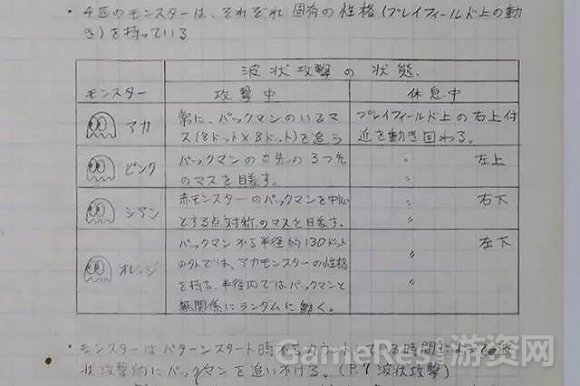 ・4匹のモンスターは、それぞれ固有の性格(プレイフィールド上の動
き)を持っている
波状攻撃の状態
モンスター 攻撃中 休息中
アカ
常に、パックマンのいるマ
ス(8ドット×8ドット)を追う
プレイフィールド上の右上付
近を動き回わる。
ピンク
パックマンの口先の3つ先
のマスを目差す。
〃 左上
〃
シアン
赤モンスターのパックマンを中心
とする点対称のマスを目差す。
〃 右下
〃
オレンジ
パックマンから半径約130ドット
の外では、アカモンスターの性格
を持ち、半径内ではパックマンと
無関係にランダムに動く。
〃 左下
〃
・モンスターはパターンスタート時から
時間
状攻撃的にパックマンを追いかける。(P.7 波状攻撃)
GameRes游资网